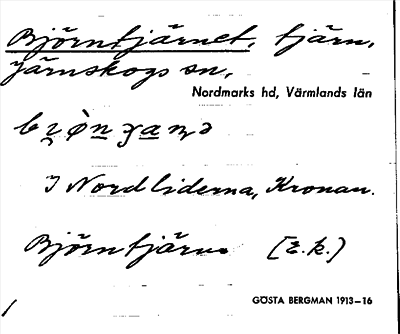 Björntjärnet, tjärn,
Järnskogs sn,
Nordmarks hd, Värmlands län
I Nordliderna, Kronan.
Björntjärn [E.k.]
GÖSTA BERGMAN 1913–16